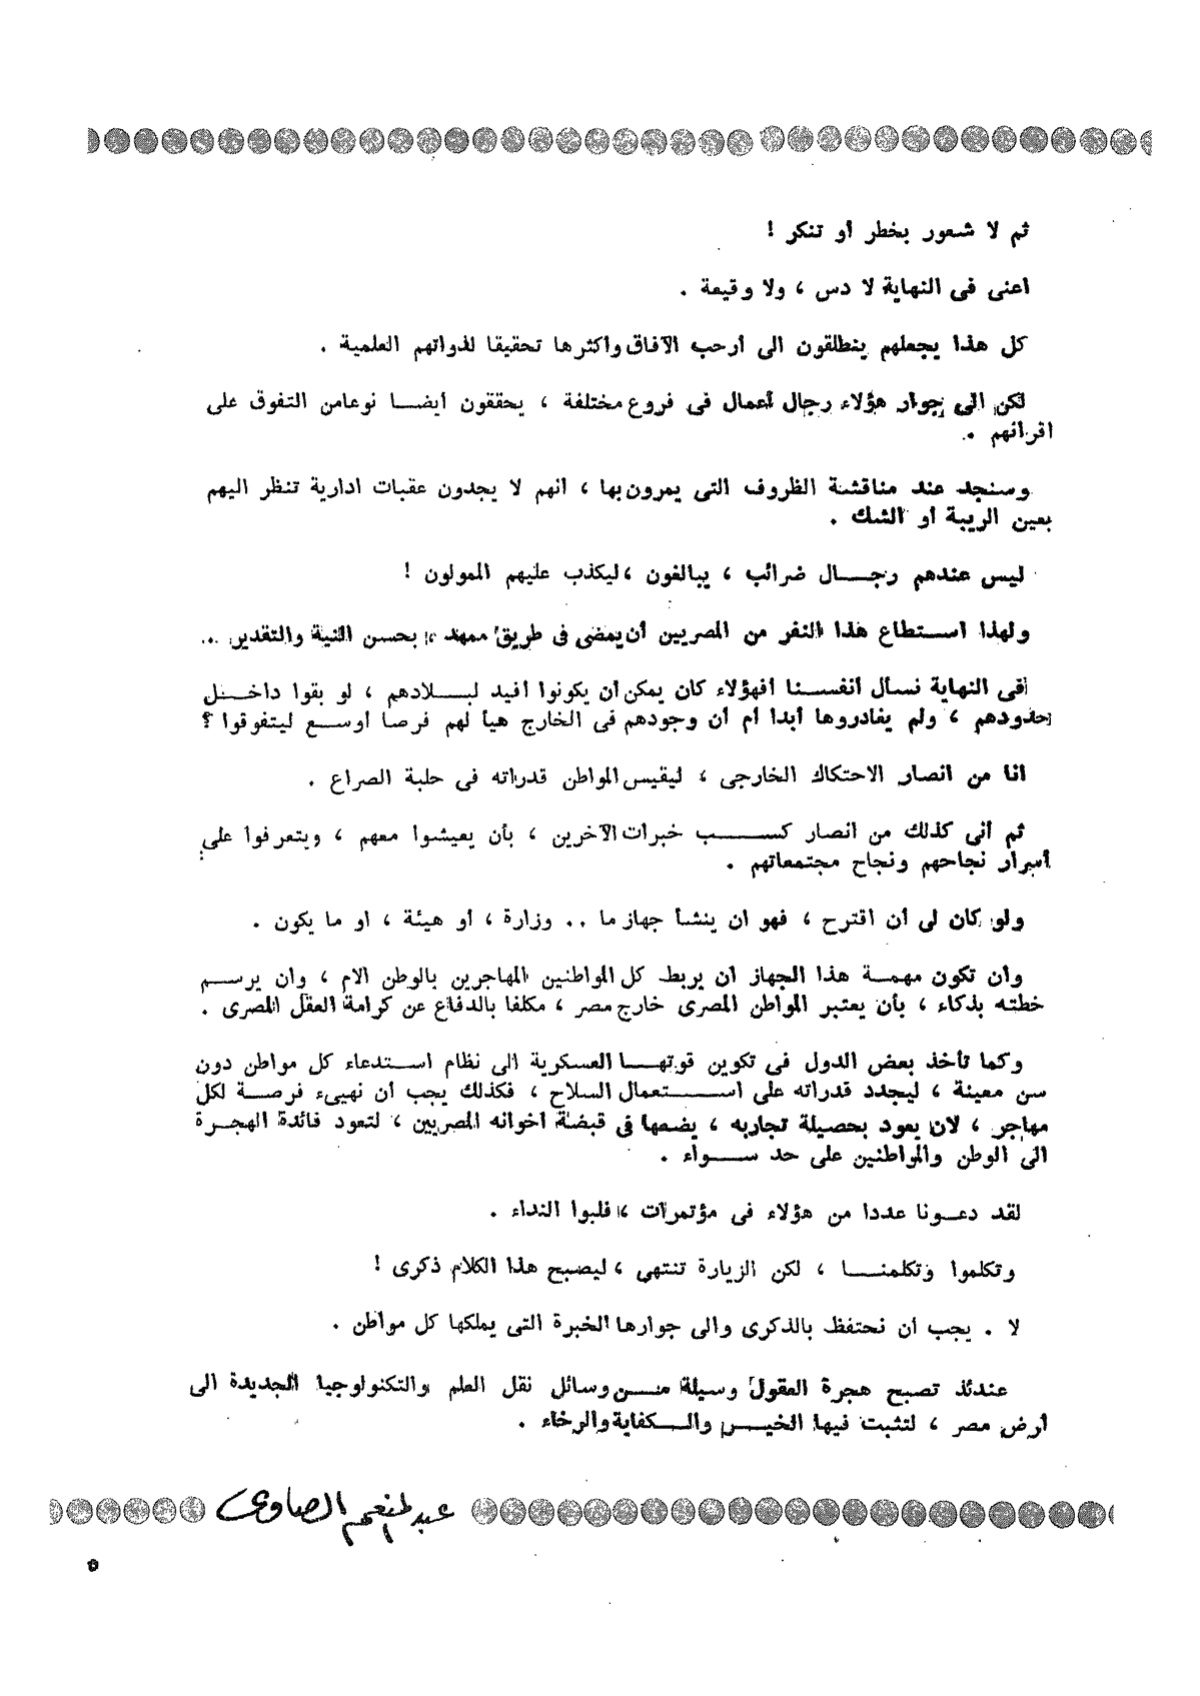 ثم لا شعور بخطر أو تنكر !
أعنى فى النهاية لا دس ، ولا وقيعة .
كل هذا يجعلهم ينطلقون الى أرحب الآفاق وأكثرها تحقيقا لذواتهم العلمية .
لكن الى جوار هؤلاء رجال أعمال فى فروع مختلفة ، يحققون أيضا نوعا من التفوق على
أقرانهم .
وسنجد عند مناقشة الظروف التى يمرون بها ، أنهم لا يجدون عقبات ادارية تنظر اليهم
بعين الريبة أو الشك .
ليس عندهم رجال ضرائب ، يبالغون ، ليكذب عليهم الممولون !
ولهذا استطاع هذا النفر من المصريين أن يمضى فى طريق ممهد ، بحسن النية والتقدير ..
فى النهاية نسأل أنفسنا أفهؤلاء كان يمكن أن يكونوا أفيد لبلادهم ، لو بقوا داخل
حدودهم ، ولم يغادروها أبدا أم أن وجودهم فى الخارج هيأ لهم فرصا أوسع ليتفوقوا ؟
أنا من أنصار الاحتكاك الخارجى ، ليقيس المواطن قدراته فى حلبة الصراع .
ثم أنى كذلك من أنصار كسب خبرات الآخرين ، بأن يعيشوا معهم ، ويتعرفوا على
أسرار نجاحهم ونجاح مجتمعاتهم .
ولو كان لى أن أقترح ، فهو أن ينشأ جهاز ما .. وزارة ، أو هيئة ، أو ما يكون .
وأن تكون مهمة هذا الجهاز أن يربط كل المواطنين المهاجرين بالوطن الأم ، وأن يرسم
خطته بذكاء ، بأن يعتبر المواطن المصرى خارج مصر ، مكلفا بالدفاع عن كرامة العقل المصرى .
وكما تأخذ بعض الدول فى تكوين قوتها العسكرية الى نظام استدعاء كل مواطن دون
سن معينة ، ليجدد قدراته على استعمال السلاح ، فكذلك يجب أن نهيىء فرصة لكل
مهاجر ، لأن يعود بحصيلة تجاربه ، يضعها فى قبضة اخوانه المصريين ، لتعود فائدة الهجرة
الى الوطن والمواطنين على حد سواء .
لقد دعونا عددا من هؤلاء فى مؤتمرات ، فلبوا النداء .
وتكلموا وتكلمنا ، لكن الزيارة تنتهى ، ليصبح هذا الكلام ذكرى !
لا . يجب أن نحتفظ بالذكرى والى جوارها الخبرة التى يملكها كل مواطن .
عندئذ تصبح هجرة العقول وسيلة من وسائل نقل العلم والتكنولوجيا الجديدة الى
أرض مصر ، لتثبت فيها الخير والكفاية والرخاء .
عبد المنعم الصاوى
٥